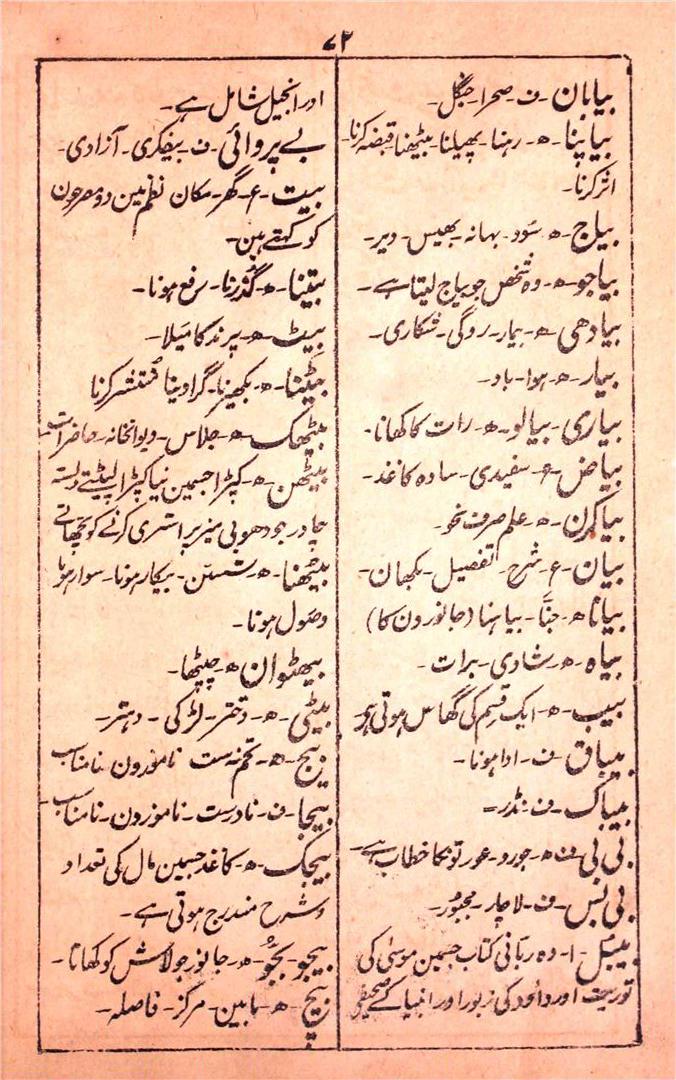 ۷۲
بیابان - ف - صحرا - جنگل -
بیاپنا - ھ - رہنا - پھیلنا - بیٹھنا قبضہ کرنا -
اثر کرنا -
بیاج - ھ - سود - بہانہ - بھیس - دیر -
بیاجو - ھ - وہ شخص جو بیاج لیتا ہے -
بیادھی - ھ - بیمار - روگی - شکاری -
بیار - ھ - ہوا - باد -
بیاری - بیالو - ھ - رات کا کھانا -
بیاض - ع - سفیدی - سادہ کاغذ -
بیاکرن - ھ - علم صرف نحو -
بیان - ع - شرح - تفصیل - بکھان -
بیانا - ھ - جنّا - بیاہنا (جانورون کا)
بیاہ - ھ - شادی - برات -
بیب - ھ - ایک قسم کی گھاس ہوتی ہے
بیباق - ف - ادا ہونا -
بیباک - ف - نڈر =
بی بی - ف ھ - جورو - عورتونکا خطاب ہے -
بی بس - ف - لاچار - مجبور -
بیبل - ا - وہ ربّانی کتاب جسمین موسیٰ کی
توریت اور داؤد کی زبور اور انبیا کے صحیفے
اور انجیل شامل ہے -
بے پروائی - ف - بیفکری - آزادی -
بیت - ع - گھر - مکان نظم مین دو مصرعون
کو کہتے ہین -
بیتنا - ھ - گذرنا - رفع ہونا -
بیٹ - ھ - پرند کا میلا -
بیٹنا - ھ - بکھیرنا - گرا دینا منتشر کرنا
بیٹھک - ھ - جلاس - دیوانخانہ - حاضرات -
بیٹھن - ھ - کپڑا جسمین نیا کپڑا لپیٹتے
چادر جو دھوبی میز پر استری کرنے کو بچھاتے
بیٹھنا - ھ - بیکار ہونا - سوار ہونا
وصول ہونا -
بیٹھوان ھ - چپٹا -
بیٹی - ھ - دختر - لڑکی - دہتر -
بیج - ھ - تخم نامناسب
بیجا - ف - نادرست - ناموزون - نامناسب -
بیجک - ھ - کاغذ جسمین مال کی تعداد
و شرح مندرج ہوتی ہے -
بیجو - بجّو - ھ - جانور جو لاش کو کھاتا -
بیچ - ھ - مابین - مرکز - فاصلہ -